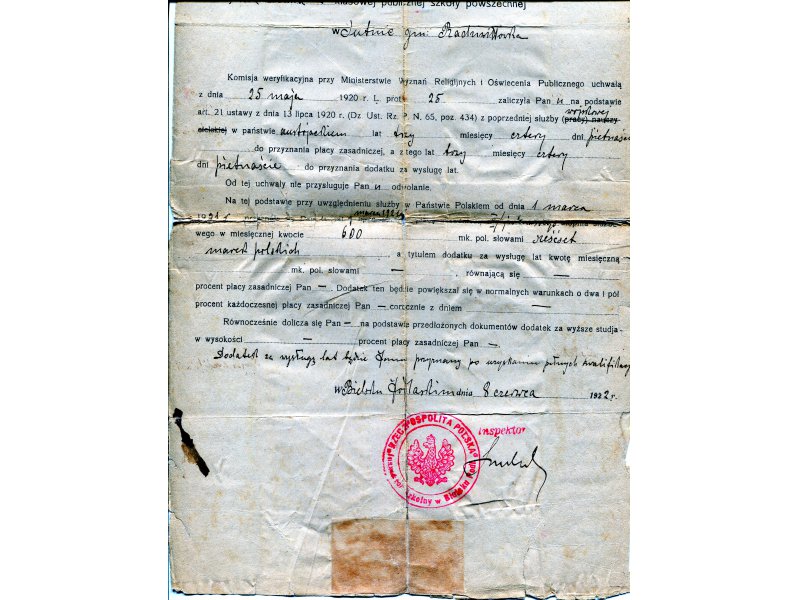 klasowej publicznej szkoły powszechnej
w Sutnie gm:
Komisja weryfikacyjna przy Ministerstwie Wyznań Religijnych i Oświecenia Publicznego uchwałą
z dnia 25 maja 1920 r. L. prot. 25 zaliczyła Pan u na podstawie
art. 21 ustawy z dnia 13 lipca 1920 r. (Dz Ust. Rz. P. N. 65, poz. 434) z poprzedniej służby (pracy) nauczy- wojskowej
cielskiej w państwie austrjackiem lat trzy miesięcy cztery dni piętnaście
do przyznania płacy zasadniczej, a z tego lat trzy miesięcy cztery
dni piętnaście do przyznania dodatku za wysługę lat.
Od tej uchwały nie przysługuje Pan u odwołanie.
Na tej podstawie przy uwzględnieniu służby w Państwie Polskiem od dnia 1 marca
wego w miesięcznej kwocie 600 mk. pol. słowami sześćset
marek polskich, a tytułem dodatku za wysługę lat kwotę miesięczną
mk. pol. słowami —, równającą się —
procent płacy zasadniczej Pan —. Dodatek ten będzie powiększał się w normalnych warunkach o dwa i pół
procent każdoczesnej płacy zasadniczej Pan — corocznie z dniem —
Równocześnie dolicza się Pan — na podstawie przedłożonych dokumentów dodatek za wyższe studja
w wysokości — procent płacy zasadniczej Pan —.
Dodatek za wysługę lat będzie Panu przyznany po uzyskaniu pełnych kwalifikacyj
w Bielsku Podlaskim dnia 8 czerwca 1922 r.
RZECZPOSPOLITA POLSKA
Inspektor
szkolny w Bielsku Podl.